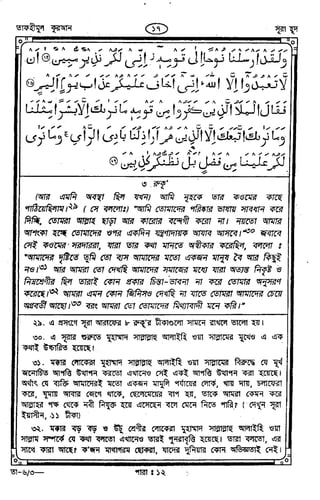 তাফহীমুল কুরআন
১৭
সূরা হূদ
وَلَقَدْ أَرْسَلْنَا نُوحًا إِلَىٰ قَوْمِهِ إِنِّي لَكُمْ نَذِيرٌ مُّبِينٌ أَن
لَّا تَعْبُدُوا إِلَّا اللَّهَ إِنِّي أَخَافُ عَلَيْكُمْ عَذَابَ يَوْمٍ أَلِيمٍ
فَقَالَ الْمَلَأُ الَّذِينَ كَفَرُوا مِن قَوْمِهِ مَا نَرَاكَ إِلَّا بَشَرًا مِّثْلَنَا
وَمَا نَرَاكَ اتَّبَعَكَ إِلَّا الَّذِينَ هُمْ أَرَاذِلُنَا بَادِيَ الرَّأْيِ وَمَا نَرَىٰ
لَكُمْ عَلَيْنَا مِن فَضْلٍ بَلْ نَظُنُّكُمْ كَاذِبِينَ
৩ রুকূ'
(আর এমনি অবস্থা ছিল যখন) আমি নূহকে তার কওমের কাছে
পাঠিয়েছিলাম।২৯ (সে বললোঃ) "আমি তোমাদের পরিষ্কার ভাষায় সাবধান করে
দিচ্ছি, তোমরা আল্লাহ ছাড়া আর কারোর বন্দেগী করো না। নয়তো আমার
আশংকা হচ্ছে তোমাদের ওপর একদিন যন্ত্রণাদায়ক আযাব আসবে।"৩০ জবাবে
সেই কওমের সরদাররা, যারা তার কথা মানতে অস্বীকার করেছিল, বললোঃ
"আমাদের দৃষ্টিতে তুমি তো ব্যস আমাদের মতো একজন মানুষ বৈ আর কিছুই
নও।৩১ আর আমরা তো দেখছি আমাদের সমাজের মধ্যে যারা অত্যন্ত নিকৃষ্ট ও
নিম্নশ্রেণীর ছিল তারাই কোন প্রকার চিন্তা-ভাবনা না করে তোমার অনুসরণ
করেছে।৩২ আমরা এমন কোন জিনিসও দেখছি না যাতে তোমরা আমাদের চেয়ে
অগ্রবর্তী আছো।৩৩ বরং আমরা তো তোমাদের মিথ্যাবাদী মনে করি।"
২৯. এ প্রসংগে সূরা আরাফের ৮ রুকূ'র টীকাগুলো সামনে রাখলে ভালো হয়।
৩০. এ সূরার শুরুতে মুহাম্মাদ সাল্লাল্লাহু আলাইহি ওয়া সাল্লামের মুখেও এ একই
কথাই উচ্চারিত হয়েছে।
৩১. মক্কার লোকেরা মুহাম্মাদ সাল্লাল্লাহু আলাইহি ওয়া সাল্লামের বিরুদ্ধে যে মূর্খ
জনোচিত আপত্তি উত্থাপন করতো এখানেও সেই একই আপত্তি উত্থাপন করা হয়েছে।
অর্থাৎ যে ব্যক্তি আমাদেরই মতো একজন মামুলি পর্যায়ের লোক, খায় দায়, চলাফেরা
করে, ঘুমায় আবার জেগে থাকে, ছেলেমেয়ের বাপ হয়, তাকে আমরা কেমন করে
আল্লাহর পক্ষ থেকে নবী নিযুক্ত হয়ে এসেছেন বলে মেনে নিতে পারি? (দেখুন সূরা
ইয়াসীন, ১১ টীকা)
৩২. মক্কার বড় বড় ও উঁচু শ্রেণীর লোকেরা মুহাম্মাদ সাল্লাল্লাহু আলাইহি ওয়া
সাল্লাম সম্পর্কে যে কথা বলতো এখানেও তারই পুনরাবৃত্তি হয়েছে। তারা বলতো, এর
সাথে কারা আছে? ক'জন মাথাগরম ছোকরা, যাদের দুনিয়ার কোন অভিজ্ঞতাই নেই।
তা-৬/৩—
পারা : ১২